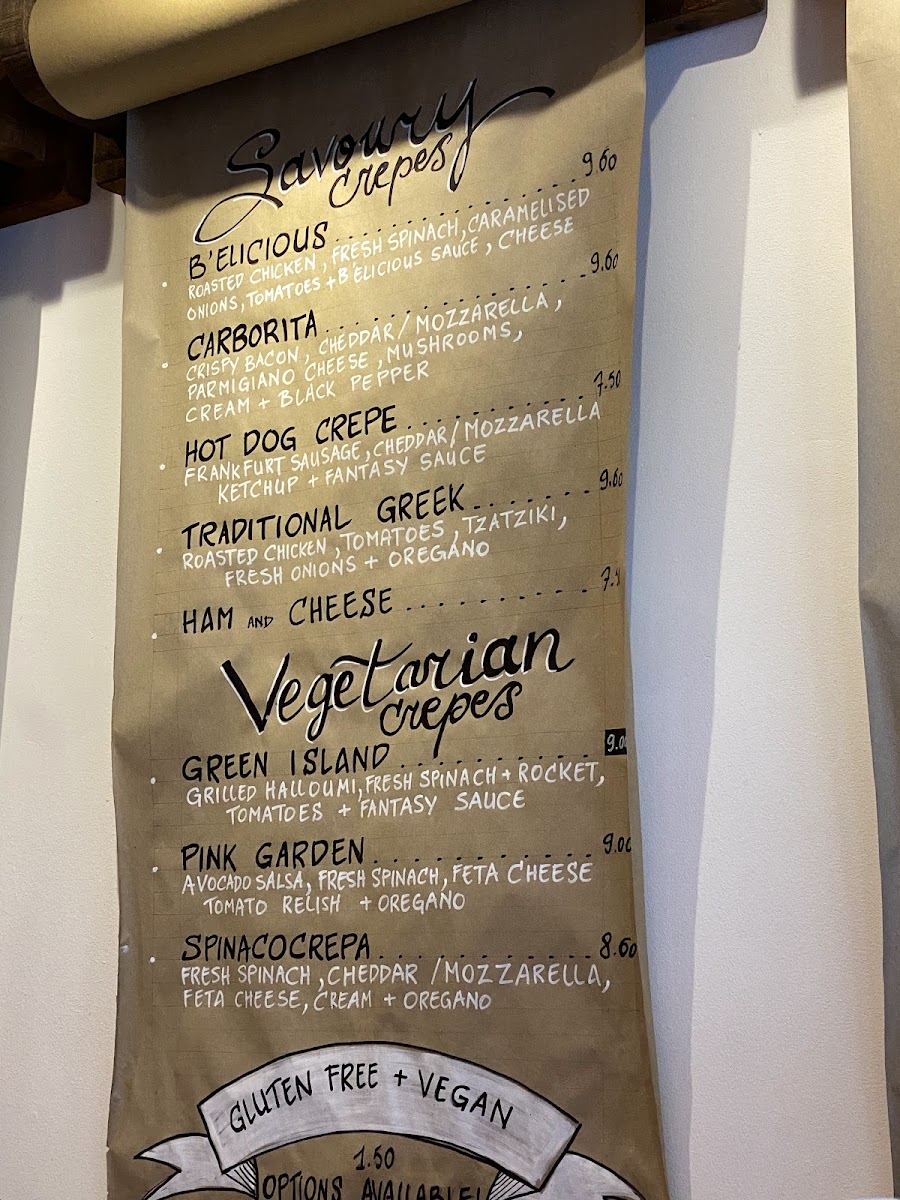 Savoury
crepes
B'ELICIOUS.................. 9.60
ROASTED CHICKEN, FRESH SPINACH, CARAMELISED
ONIONS, TOMATOES + B'ELICIOUS SAUCE, CHEESE
CARBORITA.................. 9.60
CRISPY BACON, CHEDDAR/MOZZARELLA,
PARMIGIANO CHEESE, MUSHROOMS,
CREAM + BLACK PEPPER
HOT DOG CREPE............ 7.50
FRANKFURT SAUSAGE, CHEDDAR/MOZZARELLA
KETCHUP + FANTASY SAUCE
TRADITIONAL GREEK....... 9.60
ROASTED CHICKEN, TOMATOES, TZATZIKI,
FRESH ONIONS + OREGANO
HAM AND CHEESE..........
Vegetarian
crepes
GREEN ISLAND............ 9.00
GRILLED HALLOUMI, FRESH SPINACH + ROCKET,
TOMATOES + FANTASY SAUCE
PINK GARDEN............. 9.00
AVOCADO SALSA, FRESH SPINACH, FETA CHEESE
TOMATO RELISH + OREGANO
SPINACOCREPA............ 8.60
FRESH SPINACH, CHEDDAR /MOZZARELLA,
FETA CHEESE, CREAM + OREGANO
GLUTEN FREE + VEGAN
1.50
OPTIONS AVAILABLE!